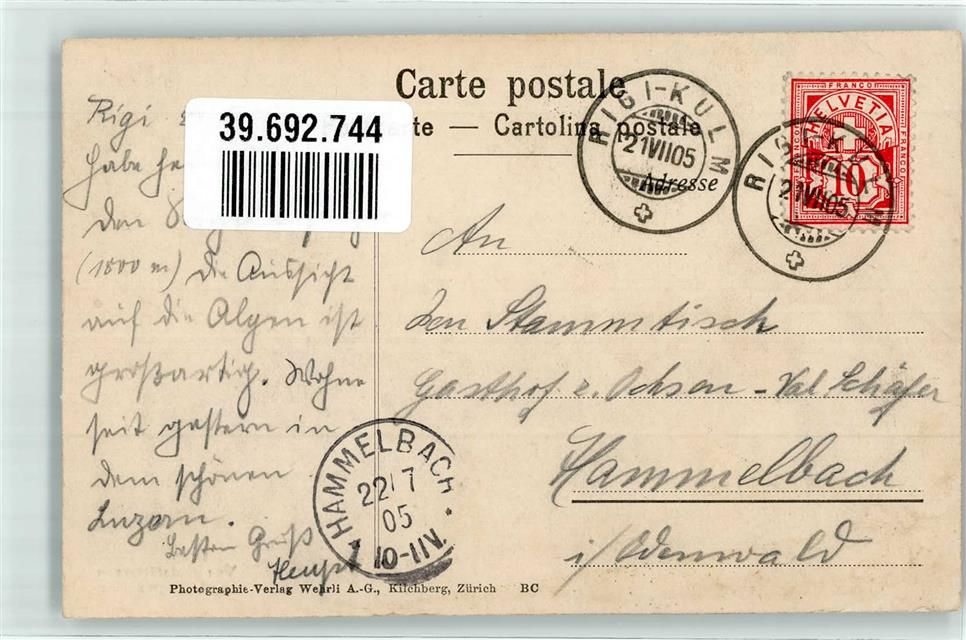 Carte postale
39.692.744
te — Cartolina postale
Adresse
RIGI-KULM
21VII05
RIGI-KULM
21VII05
FRANCO
HELVETIA
FRANCO
FRANCO
10
Rigi
habe he
den
(1800 m) die Aussicht
auf die Alpen ist
großartig. Wohne
seit gestern in
dem schönen
Luzern.
Besten Gruß
An
den Stammtisch
Gasthof z. Ochsen - Val Schäfer
Hammelbach
i/Odenwald
HAMMELBACH
22/7
05
10-11V.
Photographie-Verlag Wehrli A.-G., Kilchberg, Zürich BC